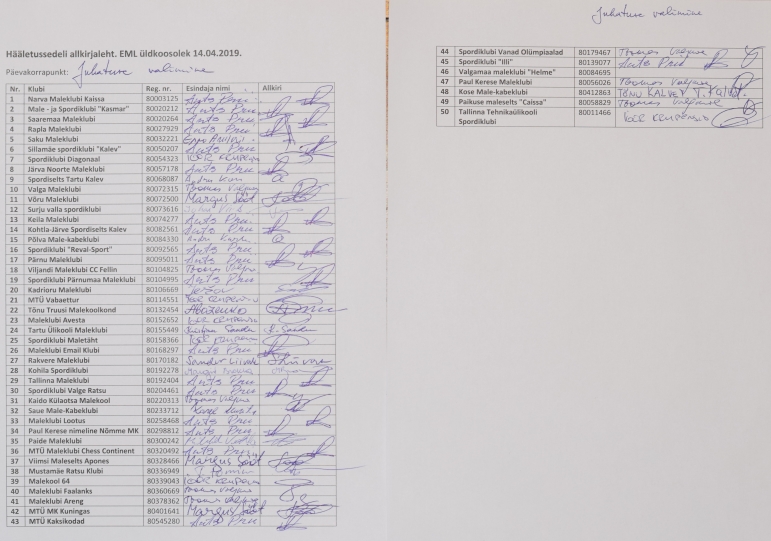 Hääletussedeli allkirjaleht. EML üldkoosolek 14.04.2019.
Päevakorrapunkt: Juhatuse valimine
Nr. Klubi Reg. nr. Esindaja nimi Allkiri
1 Narva Maleklubi Kaissa 80003125 Ants Pruu
2 Male - ja Spordiklubi "Kasmar" 80020212 Ants Pruu
3 Saaremaa Maleklubi 80020264 Ants Pruu
4 Rapla Maleklubi 80027929 Ants Pruu
5 Saku Maleklubi 80032221
6 Sillamäe spordiklubi "Kalev" 80050207 Ants Pruu
7 Spordiklubi Diagonaal 80054323
8 Järva Noorte Maleklubi 80057178 Ants Pruu
9 Spordiselts Tartu Kalev 80068087
10 Valga Maleklubi 80072315 Toomas Valgre
11 Võru Maleklubi 80072500 Margus Sööt
12 Surju valla spordiklubi 80073616
13 Keila Maleklubi 80074277 Ants Pruu
14 Kohtla-Järve Spordiselts Kalev 80082561 Ants Pruu
15 Põlva Male-kabeklubi 80084330
16 Spordiklubi "Reval-Sport" 80092565 Ants Pruu
17 Pärnu Maleklubi 80095011 Ants Pruu
18 Viljandi Maleklubi CC Fellin 80104825 Toomas Valgre
19 Spordiklubi Pärnumaa Maleklubi 80104995 Ants Pruu
20 Kadrioru Maleklubi 80106669
21 MTÜ Vabaettur 80114551
22 Tõnu Truusi Malekoolkond 80132454
23 Maleklubi Avesta 80152652
24 Tartu Ülikooli Maleklubi 80155449
25 Spordiklubi Maletäht 80158366
26 Maleklubi Email Klubi 80168297 Ants Pruu
27 Rakvere Maleklubi 80170182 Sander
28 Kohila Spordiklubi 80192278
29 Tallinna Maleklubi 80192404 Ants Pruu
30 Spordiklubi Valge Ratsu 80204461 Ants Pruu
31 Kaido Külaotsa Malekool 80220313 Toomas Valgre
32 Saue Male-Kabeklubi 80233712
33 Maleklubi Lootus 80258468 Ants Pruu
34 Paul Kerese nimeline Nõmme MK 80298812 Ants Pruu
35 Paide Maleklubi 80300242
36 MTÜ Maleklubi Chess Continent 80320492 Ants Pruu
37 Viimsi Maleselts Apones 80328466 Margus Sööt
38 Mustamäe Ratsu Klubi 80336949
39 Malekool 64 80339043
40 Maleklubi Faalanks 80360669 Toomas Valgre
41 Maleklubi Areng 80378362 Toomas Valgre
42 MTÜ MK Kuningas 80401641 Margus Sööt
43 MTÜ Kaksikodad 80545280 Ants Pruu
Juhatuse valimine
44 Spordiklubi Vanad Olümpiaalad 80179467 Toomas Valgre
45 Spordiklubi "Illi" 80139077 Ants Pruu
46 Valgamaa maleklubi "Helme" 80084695
47 Paul Kerese Maleklubi 80056026 Toomas Valgre
48 Kose Male-kabeklubi 80412863 TÕNU KALVET T. Kalvet
49 Paikuse maleselts "Caissa" 80058829 Toomas Valgre
50 Tallinna Tehnikaülikooli Spordiklubi 80011466